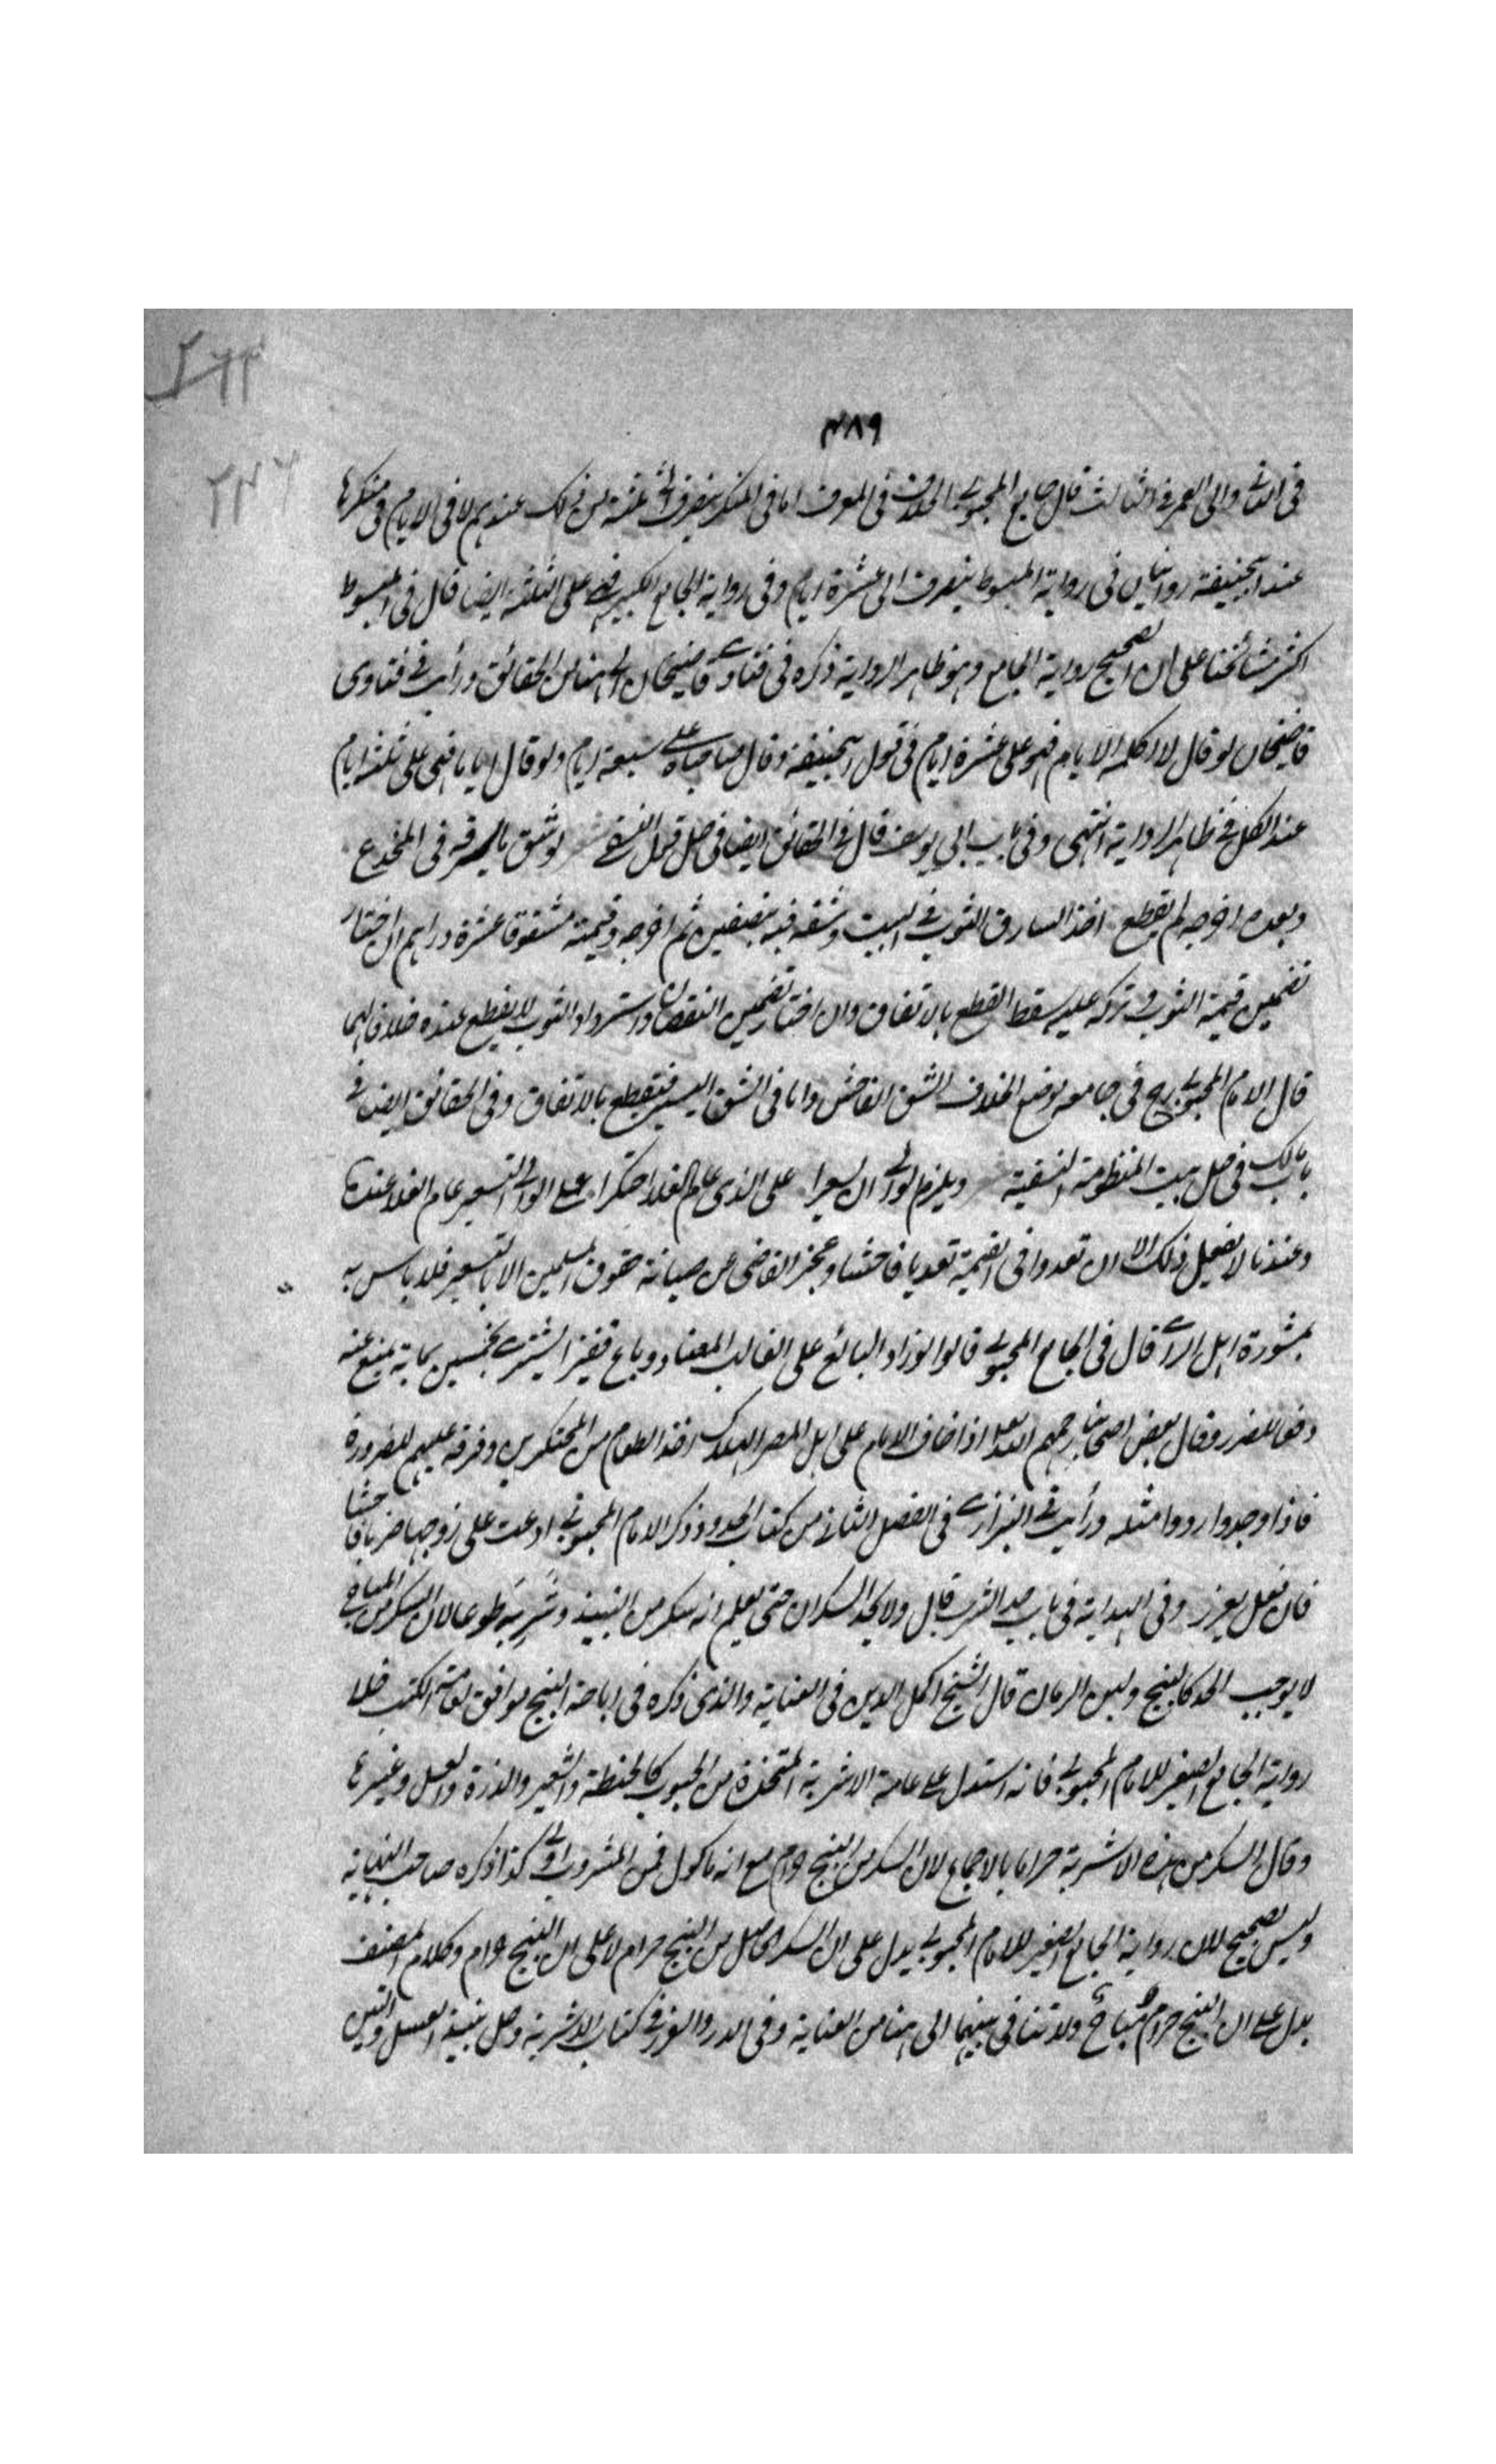 ٤٨٩
في الثاني والى العمر في الثالث قال في جامع المحبوبي الخلاف في المعرف اما في المنكر ينصرف الى ثلثة من ذلك عندهم لا في الايام وفي منكرها
عند ابيحنيفة روايتان في رواية المبسوط ينصرف الى عشرة ايام وفي رواية الجامع الكبير فهي على الثلثة ايضا قال في المبسوط
اكثر مشائخنا على ان الصحيح رواية الجامع وهو ظاهر الرواية ذكره في فتاوى قاضيخان الى هنا من الحقائق ورأيت في فتاوى
قاضيخان لو قال لا اكلمه الايام فهو على عشرة ايام في قول ابيحنيفة وقال صاحباه على سبعة ايام ولو قال اياما فهي على ثلثة ايام
عند الكل في ظاهر الرواية انتهى وفي باب ابي يوسف قال في الحقائق ايضا في حل قول النسفي لو شق ما يسرقه في المخدع
وبعده اخرجه لم يقطع اخذ السارق الثوب في البيت وشقه فيه بنصفين ثم اخرجه وقيمته مشقوقا عشرة دراهم ان اختار
تضمين قيمة الثوب وتركه عليه سقط القطع بالاتفاق وان اختار تضمين النقصان واسترداد الثوب لا يقطع عنده خلافا لهما
قال الامام المحبوبي رح في جامعه موضع الخلاف الشق الفاحش واما في الشق اليسير فيقطع بالاتفاق وفي الحقائق ايضا في
باب مالك في حل بيت المنظومة النسفية ويلزم الوالي ان يسعرا على الذي عام الغلا احتكرا على الوالي التسعير عام الغلا عنده
وعندنا لا نفعل ذلك الا ان تعدوا في القيمة تعديا فاحشا وعجز القاضي عن صيانة حقوق المسلمين الا بالتسعير فلا باس به
بمشورة اهل الرأي قال في الجامع المحبوبي قالوا لو زاد البائع على الغالب المعتاد وباع قفيزا يشترى بخمسين بماية يمنع عنه
دفعا للضرر وقال بعض اصحابنا رحمهم الله تعالى اذا خاف الامام على اهل المصر الهلاك اخذ الطعام من المحتكرين وفرقه عليهم للضرورة
فاذا وجدوا ردوا مثله ورأيت في البزازي في الفصل الثاني من كتاب الحدود وذكر الامام المحبوبي ادعت على زوجها ضربا فاحشا
فان فعل يعزر وفي الهداية في باب حد الشرب قال ولا يحد السكران حتى يعلم انه سكر من النبيذ وشربه طوعا لان السكر من المباح
لا يوجب الحد كالبنج ولبن الرماك قال الشيخ اكمل الدين في العناية والذي ذكره في اباحة البنج موافق لعامة الكتب خلا
رواية الجامع الصغير للامام المحبوبي فانه استدل على عامة الاشربة المتخذة من الحبوب كالحنطة والشعير والذرة والعسل وغيرها
وقال السكر من هذه الاشربة حراما بالاجماع لان السكر من البنج حرام مع انه ماكول فمن المشروب اولى كذا ذكره صاحب النهاية
وليس بصحيح لان رواية الجامع الصغير للامام المحبوبي يدل على ان السكر الحاصل من البنج حرام لا على ان البنج حرام وكلام المصنف
يدل على ان البنج مباح ولا تنافي بينهما الى هنا من العناية وفي الدرر والغرر في كتاب الاشربة وحل نبيذ العسل والتين